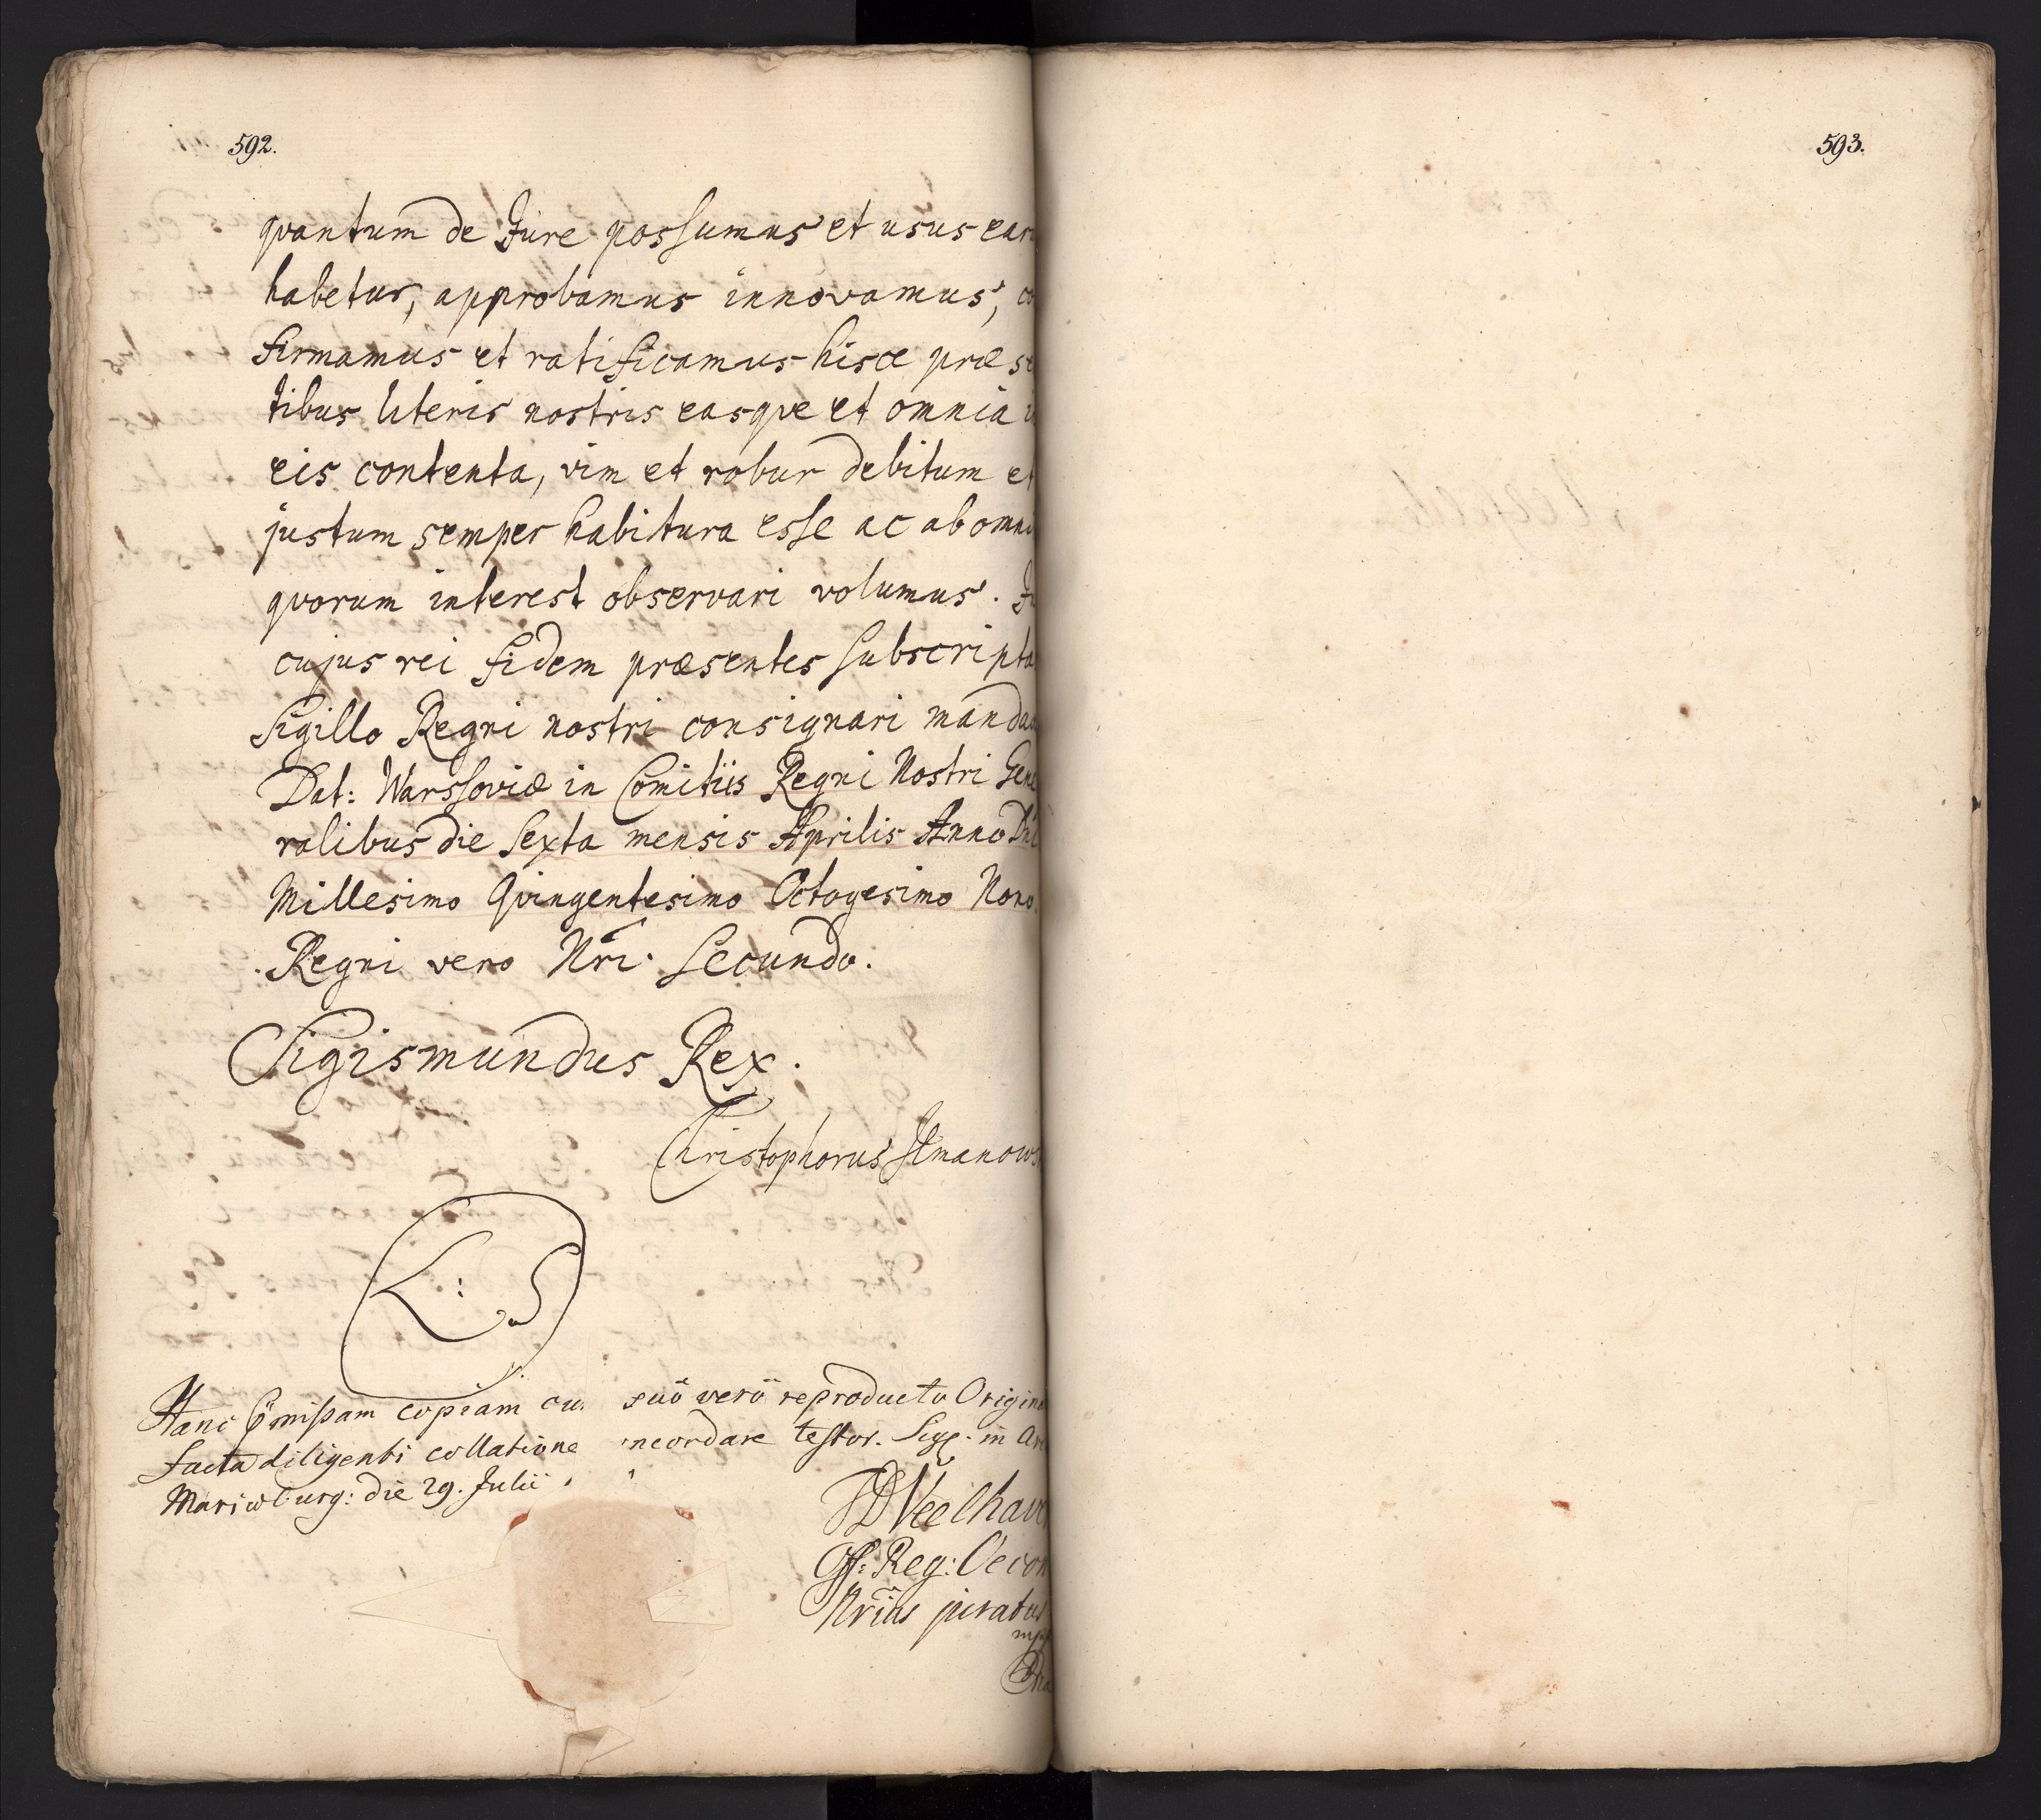 592.
qvantum de Jure possumus et usus ear
habetur, approbamus innovamus, co
firmamus et ratificamus hisce præse
tibus literis nostris easqve et omnia
eis contenta, vim et robur debitum et
justum semper habitura esse ac ab omni
qvorum interest observari volumus. In
cujus rei fidem præsentes subscripta
Sigillo Regni nostri consignari manda
Dat: Warssoviæ in Comitiis Regni Nostri Gene
ralibus die Sexta mensis Aprilis Anno Dni
Millesimo Qvingentesimo Octogesimo Nono.
Regni vero Nri. Secundo.
Sigismundus Rex.
Christophorus
L: S
Hanc copiam cu suo vero reproducto Origin
facta diligenti collatione ncordare testor. in Ar
Marienburg: die 29. Julii
Off: Reg: Oecon
Nrius juratus
593.